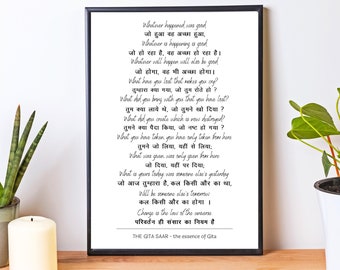 Whatever happened was good,
जो हुआ वह अच्छा हुआ,
Whatever is happening is good
जो हो रहा है, वह अच्छा हो रहा है।
Whatever will happen will also be good.
जो होगा, वह भी अच्छा होगा।
What have you lost that makes you cry?
तुम्हारा क्या गया, जो तुम रोते हो ?
What did you bring with you that you have lost?
तुम क्या लाये थे, जो तुमने खो दिया ?
What did you create which is now destroyed?
तुमने क्या पैदा किया, जो नष्ट हो गया ?
What you have taken, you have only taken from here
तुमने जो लिया, यहीं से लिया;
What was given, was only given from here
जो दिया, यहीं पर दिया;
What is yours today was someone else's yesterday
जो आज तुम्हारा है, कल किसी और का था,
Will be someone else's tomorrow
कल किसी और का होगा ।
Change is the law of the universe.
परिवर्तन ही संसार का नियम है
THE GITA SAAR - the essence of Gita